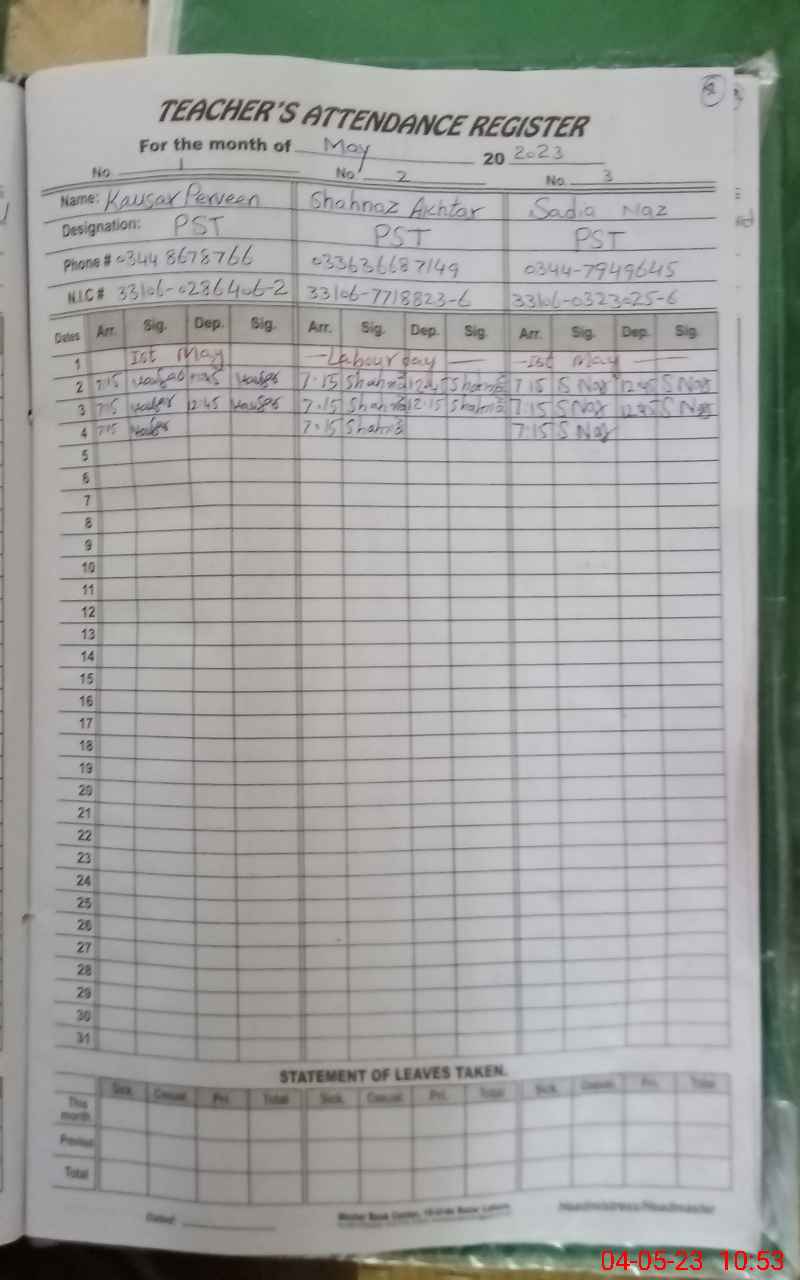 TEACHER'S ATTENDANCE REGISTER
For the month of May 20 2023
No. 1 No. 2 No. 3
Name: Kausar Perveen Shahnaz Akhtar Sadia Naz
Designation: PST PST PST
Phone # 0344 8678766 033636687149 0344-7949645
N.I.C # 33106-0286406-2 33106-7718823-6 33106-0323025-6
Dates Arr. Sig. Dep. Sig. Arr. Sig. Dep. Sig. Arr. Sig. Dep. Sig.
1 Ist May — Labour day — — Ist May —
2 7:15 Kausar Kausar 7:15 12:45 7:15 S Naz 12:45 S Naz
3 7:15 Kausar 12:45 Kausar 7:15 12:15 7:15 S Naz 12:45 S Naz
4 7:15 Kausar 7:15 7:15 S Naz
5
6
7
8
9
10
11
12
13
14
15
16
17
18
19
20
21
22
23
24
25
26
27
28
29
30
31
STATEMENT OF LEAVES TAKEN.
Sick. Casual. Pri. Total Sick. Casual. Pri. Total Sick. Casual. Pri. Total
This month
Previous
Total
Dated: Headmistress/Headmaster
04-05-23 10:53